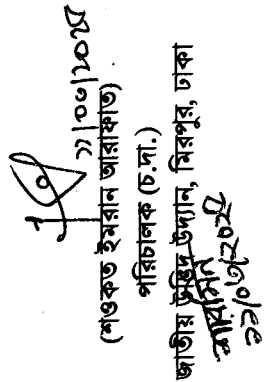 ১১/০৩/২০২৫
(শওকত ইমরান আরাফাত)
পরিচালক (চ.দা.)
জাতীয় উদ্ভিদ উদ্যান, মিরপুর, ঢাকা
১১/০৩/২০২৫